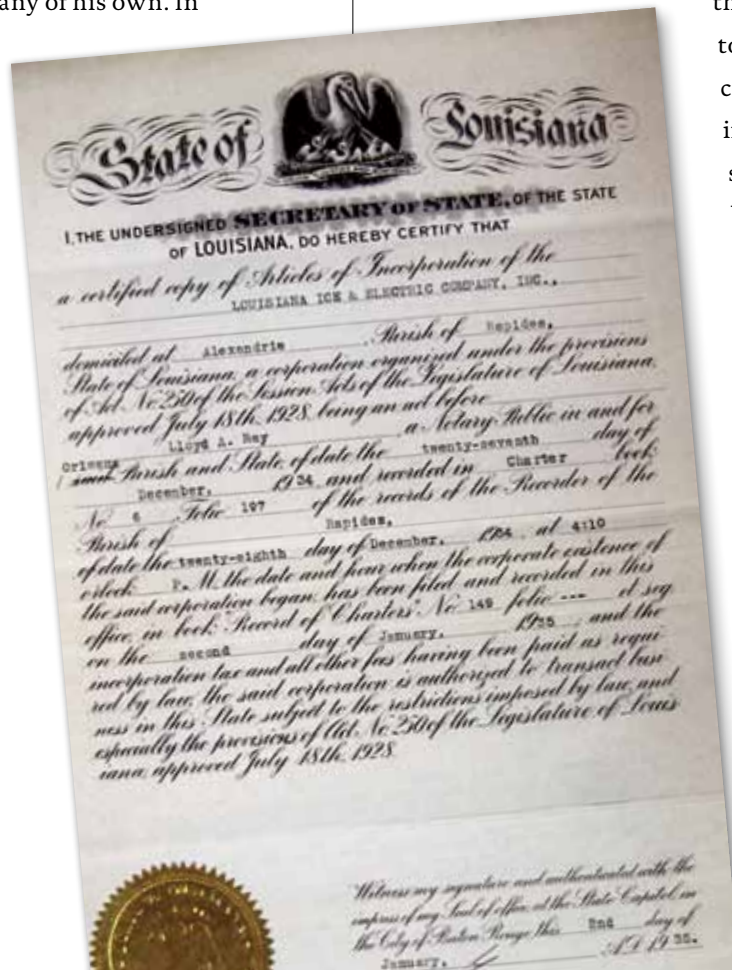 any of his own. In
State of Louisiana
I, THE UNDERSIGNED SECRETARY OF STATE, OF THE STATE
OF LOUISIANA, DO HEREBY CERTIFY THAT
a certified copy of Articles of Incorporation of the
LOUISIANA ICE & ELECTRIC COMPANY, INC.,
domiciled at Alexandria Parish of Rapides,
State of Louisiana, a corporation organized under the provisions
of Act No. 250 of the Session Acts of the Legislature of Louisiana,
approved July 18th, 1928, being an act before
Lloyd A. Ray a Notary Public in and for
Orleans Parish and State, of date the twenty-seventh day of
December, 1934 and recorded in Charter book
No. 6 Folio 197 of the records of the Recorder of the
Parish of Rapides,
of date the twenty-eighth day of December, 1934, at 4:10
o'clock P. M. the date and hour when the corporate existence of
the said corporation began, has been filed and recorded in this
office, in book "Record of Charters" No. 149 folio --- et seq
on the second day of January, 1935 and the
incorporation tax and all other fees having been paid as requi
red by law, the said corporation is authorized to transact busi
ness in this State subject to the restrictions imposed by law, and
especially the provisions of Act No. 250 of the Legislature of Louis
iana, approved July 18th, 1928.
Witness my signature and authenticated with the
impress of my Seal of office at the State Capitol, in
the City of Baton Rouge this 2nd day of
January, A.D. 1935.